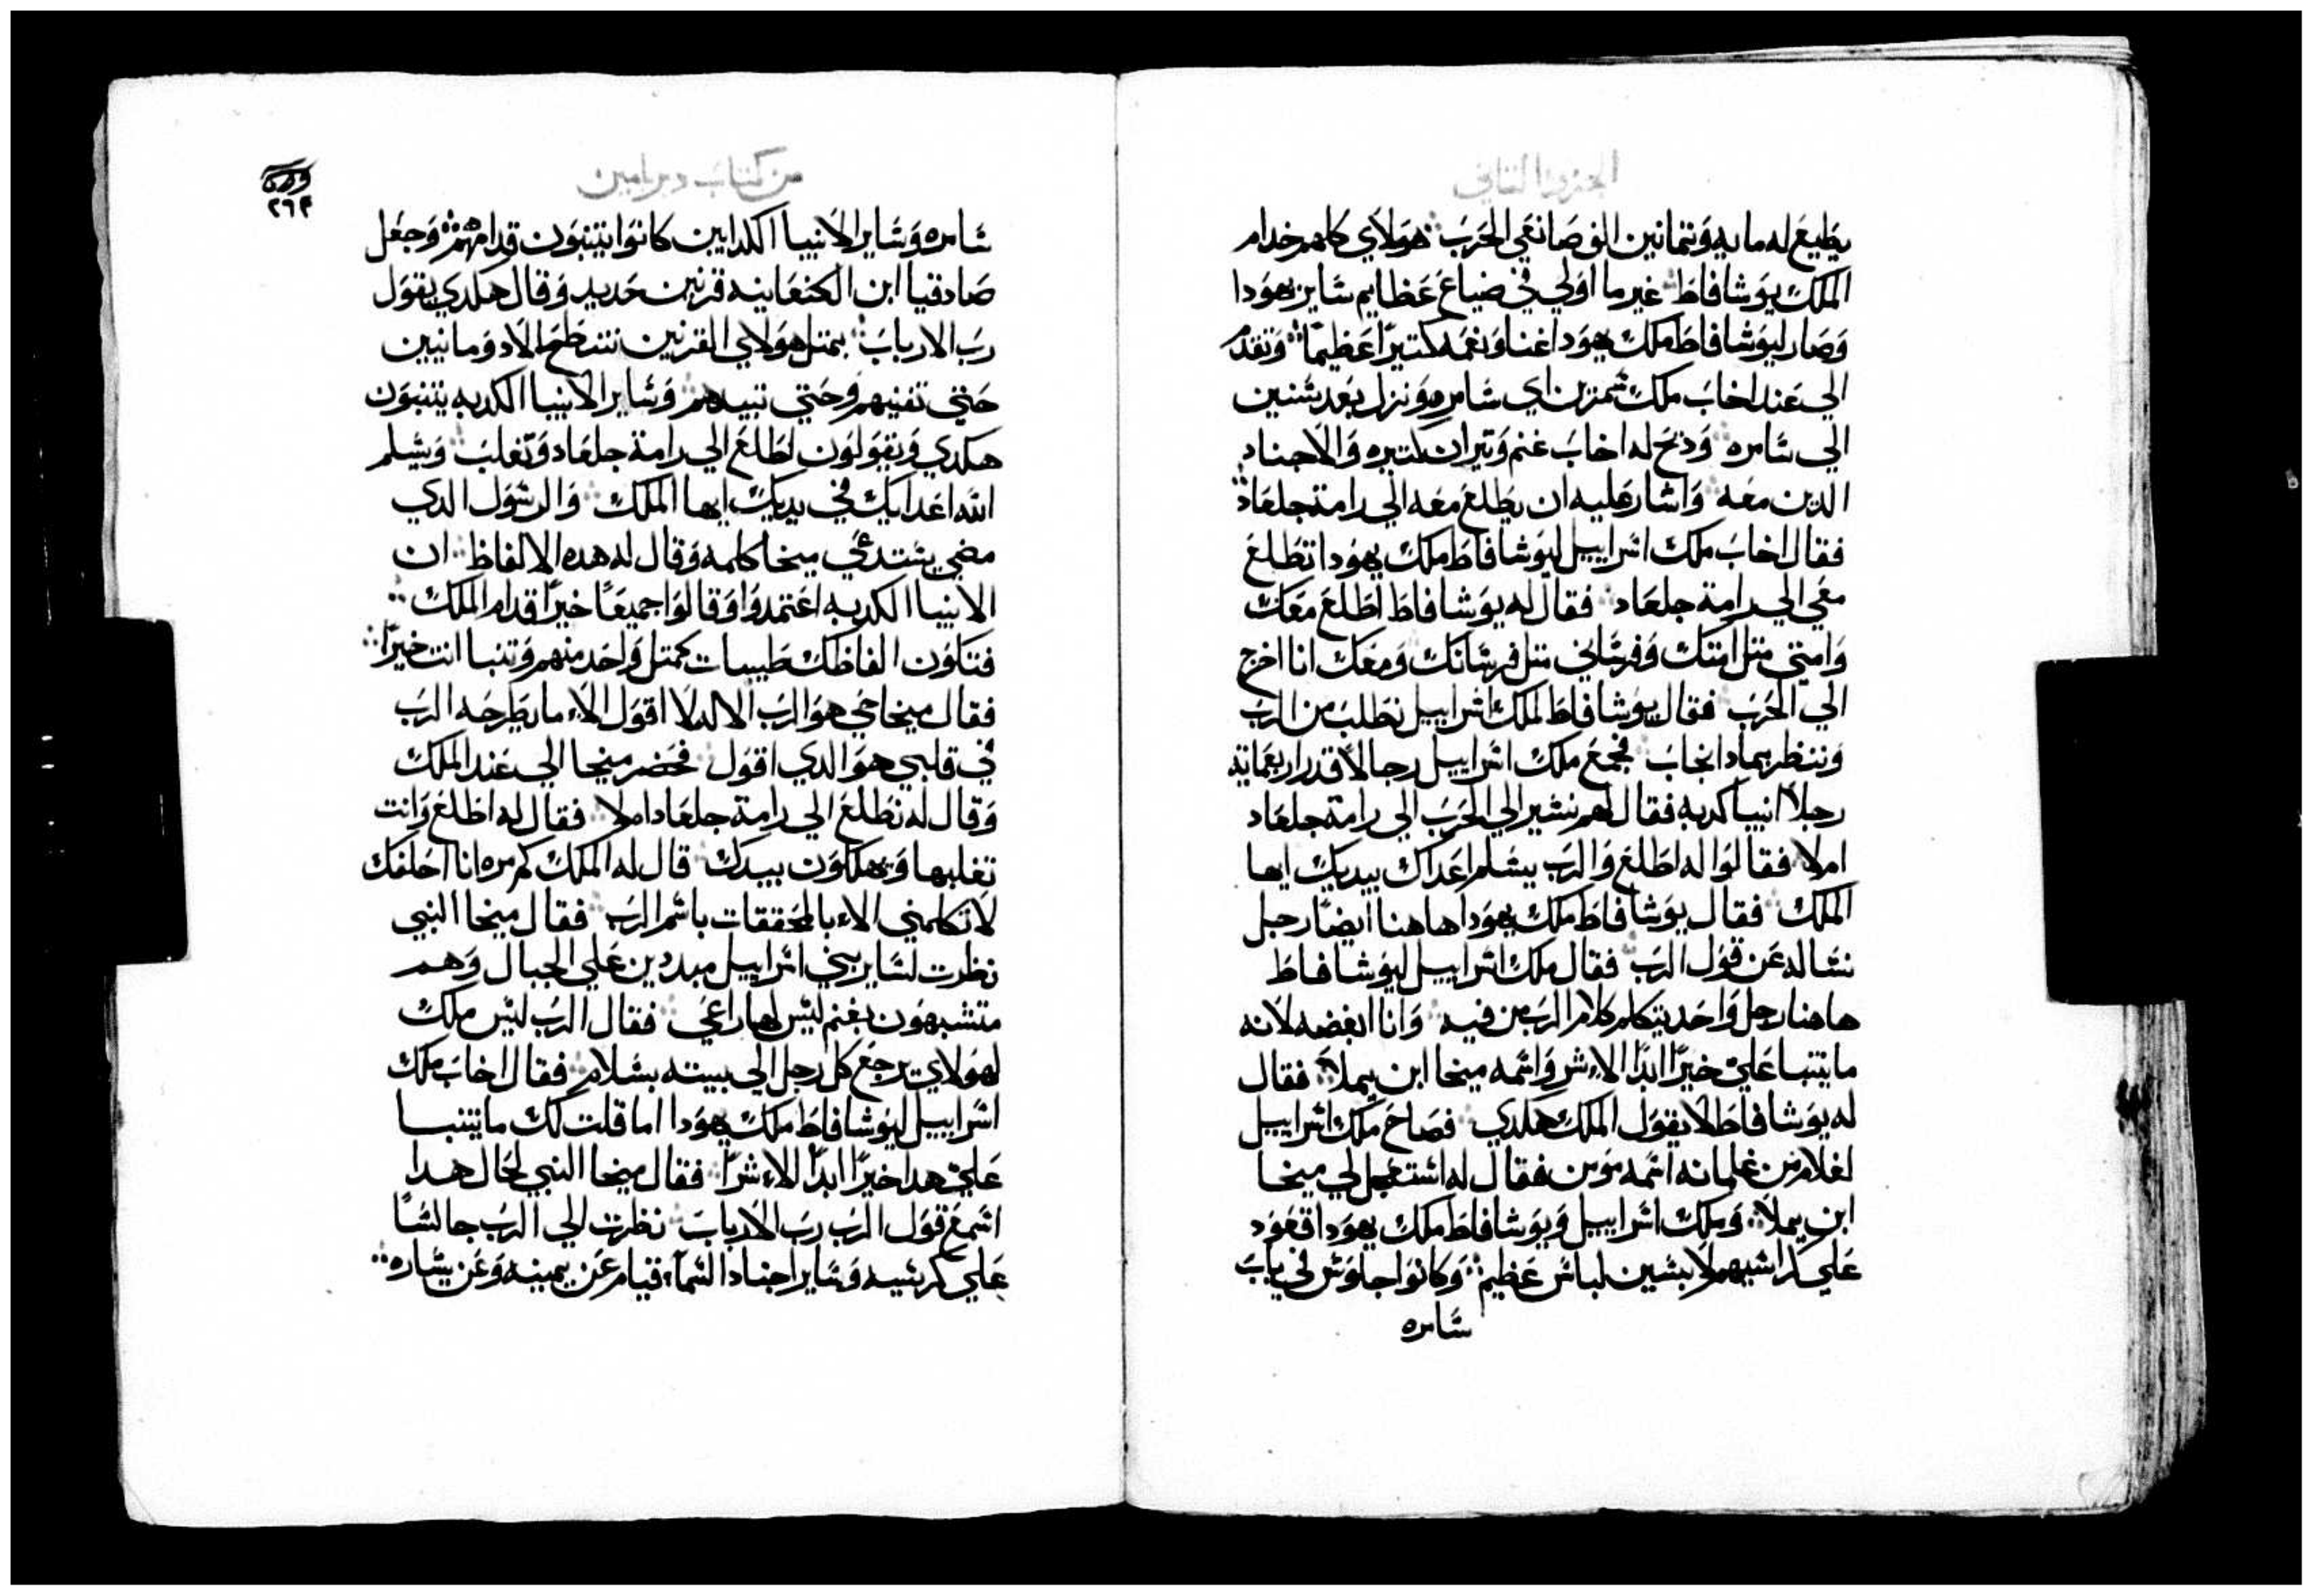 الجزء الثاني
يطيع له مايه وثمانين الف صانعي الحرب هولاي كلهم خدام
الملك يوشافاط غير ما اولي في ضياع عظايم ساير يهودا
وصار ليوشافاط ملك يهودا غنا ونعمه كتيرًا عظيمًا وتقدم
الي عند اخاب ملك شمرين اي سامره ونزل بعد سنين
الي سامره ودبح له اخاب غنم وتيران كتيره والاجناد
الدين معه واشار عليه ان يطلع معه الي رامة جلعاد
فقال اخاب ملك اسراييل ليوشافاط ملك يهودا تطلع
معي الي رامة جلعاد فقال له يوشافاط اطلع معك
وامتي متل امتك وفرساني متل فرسانك ومعك انا اخرج
الي الحرب فقال يوشافاط لملك اسراييل نطلب من الرب
وننظر بمادا نجاب فجمع ملك اسراييل رجالا قدر اربعماية
رجلاً انبيا كدبه فقال لهم نسير الي الحرب الي رامة جلعاد
ام لا فقالوا له اطلع والرب يسلم اعداك بيديك ايها
الملك فقال يوشافاط ملك يهودا هاهنا ايضًا رجل
نساله عن قول الرب فقال ملك اسراييل ليوشافاط
هاهنا رجل واحد يتكلم كلام الرب من فيه وانا ابغضه لانه
ما يتنبا علي خيرًا ابدًا الاء شر واسمه ميخا ابن يملا فقال
له يوشافاط لا يقول الملك هكدي فصاح ملك اسراييل
لغلام من غلمانه اسمه مومن فقال له استعجل لي ميخا
ابن يملا وملك اسراييل ويوشافاط ملك يهودا قعود
علي كراسيهم لابسين لباس عظيم وكانوا جلوس في باب
سامره
من كتاب دبريامين
٢٦٣
سامره وساير الانبيا الكدابين كانوا يتنبون قدامهم وجعل
صادقيا ابن الكنعانيه قرنين حديد وقال هكدي يقول
رب الارباب بمتل هولاي القرنين تنطح الادومانيين
حتي تفنيهم وحتي تبيدهم وساير الانبيا الكدبه يتنبون
هكدي ويقولون اطلع الي رامة جلعاد وتغلب ويسلم
الله اعدايك في يديك ايها الملك والرسول الدي
مضي يستدعي ميخا كلمه وقال له هده الالفاظ ان
الانبيا الكدبه اعتمدوا وقالوا جميعًا خيرًا قدام الملك
فتكون الفاظك طيبات كمتل واحد منهم وتنبا انت خيرًا
فقال ميخا حي هو الرب الاله لا اقول الاء ما يطرحه الرب
في قلبي هو الدي اقول فحضر ميخا الي عند الملك
وقال له نطلع الي رامة جلعاد ام لا فقال له اطلع وانت
تغلبها ويهلكون بيدك قال له الملك كم مره انا احلفك
لا تكلمني الاء بالمحققات باسم الرب فقال ميخا النبي
نظرت لساير بني اسراييل مبددين علي الجبال وهم
متشبهون بغنم ليس لها راعي فقال الرب ليس ملك
لهولاي يرجع كل رجل الي بيته بسلام فقال اخاب ملك
اسراييل ليوشافاط ملك يهودا اما قلت لك ما يتنبا
علي هدا خيرًا ابدًا الاء شرًا فقال ميخا النبي لحال هدا
اسمع قول الرب رب الارباب نظرت الي الرب جالسًا
علي كرسيه وساير اجناد السمآء قيام عن يمينه وعن يساره